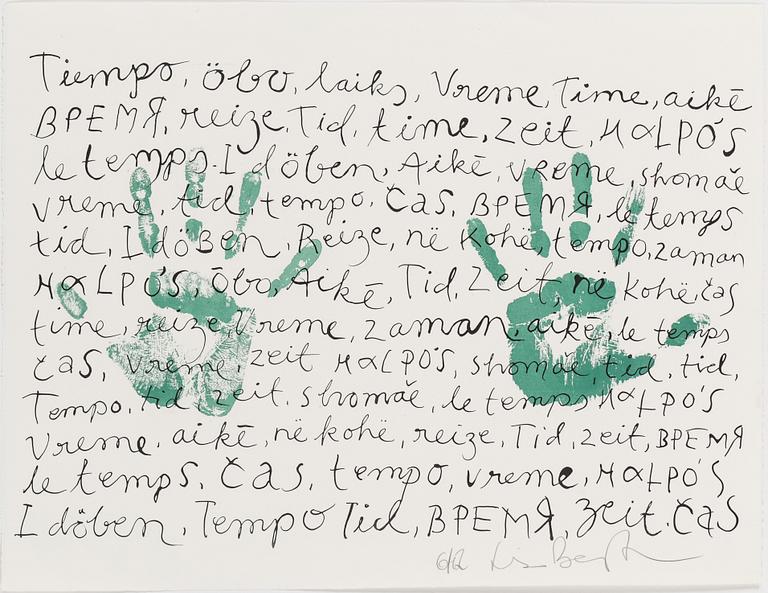 Tiempo, öbo, laiks, Vreme, Time, aikē
ВРЕМЯ, reize, Tid, time, Zeit, ΚαLPÓS
le temps. I döben, Aikē, vreme, shomaē
vreme, tid, tempo, Čas, ВРЕМЯ, le temps
tid, I döBen, Reize, në Kohë, tempo, zaman
ΚαLPÓS, Öbo, Aikē, Tid, Zeit, në kohë, čas
time, reize, Vreme, zaman, aikē, le temps
čas, vreme, zeit ΚαLPÓS, shomaē, tid, tid,
Tempo, tid, zeit, shomaē, le temps, ΚαLPÓS
Vreme, aikē, në kohë, reize, Tid, zeit, ВРЕМЯ
le temps, Čas, tempo, vreme, ΚαLPÓS
I döben, Tempo Tid, ВРЕМЯ, Zeit. Čas